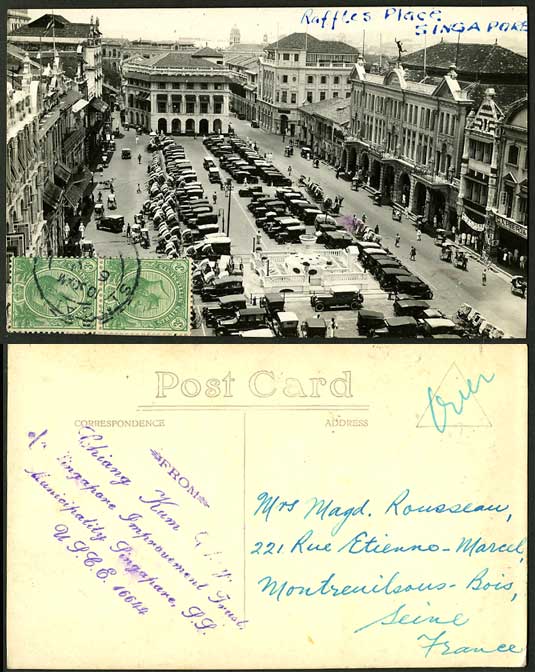 Raffles Place
SINGAPORE
Post Card
CORRESPONDENCE
ADDRESS
FROM
Chiang Kum
c/o Singapore Improvement Trust,
Municipality Singapore, S.S.
U.S.C.E. 16644
Mrs Magd. Rousseau,
221 Rue Etienne-Marcel,
Montreuilsous-Bois,
Seine
France